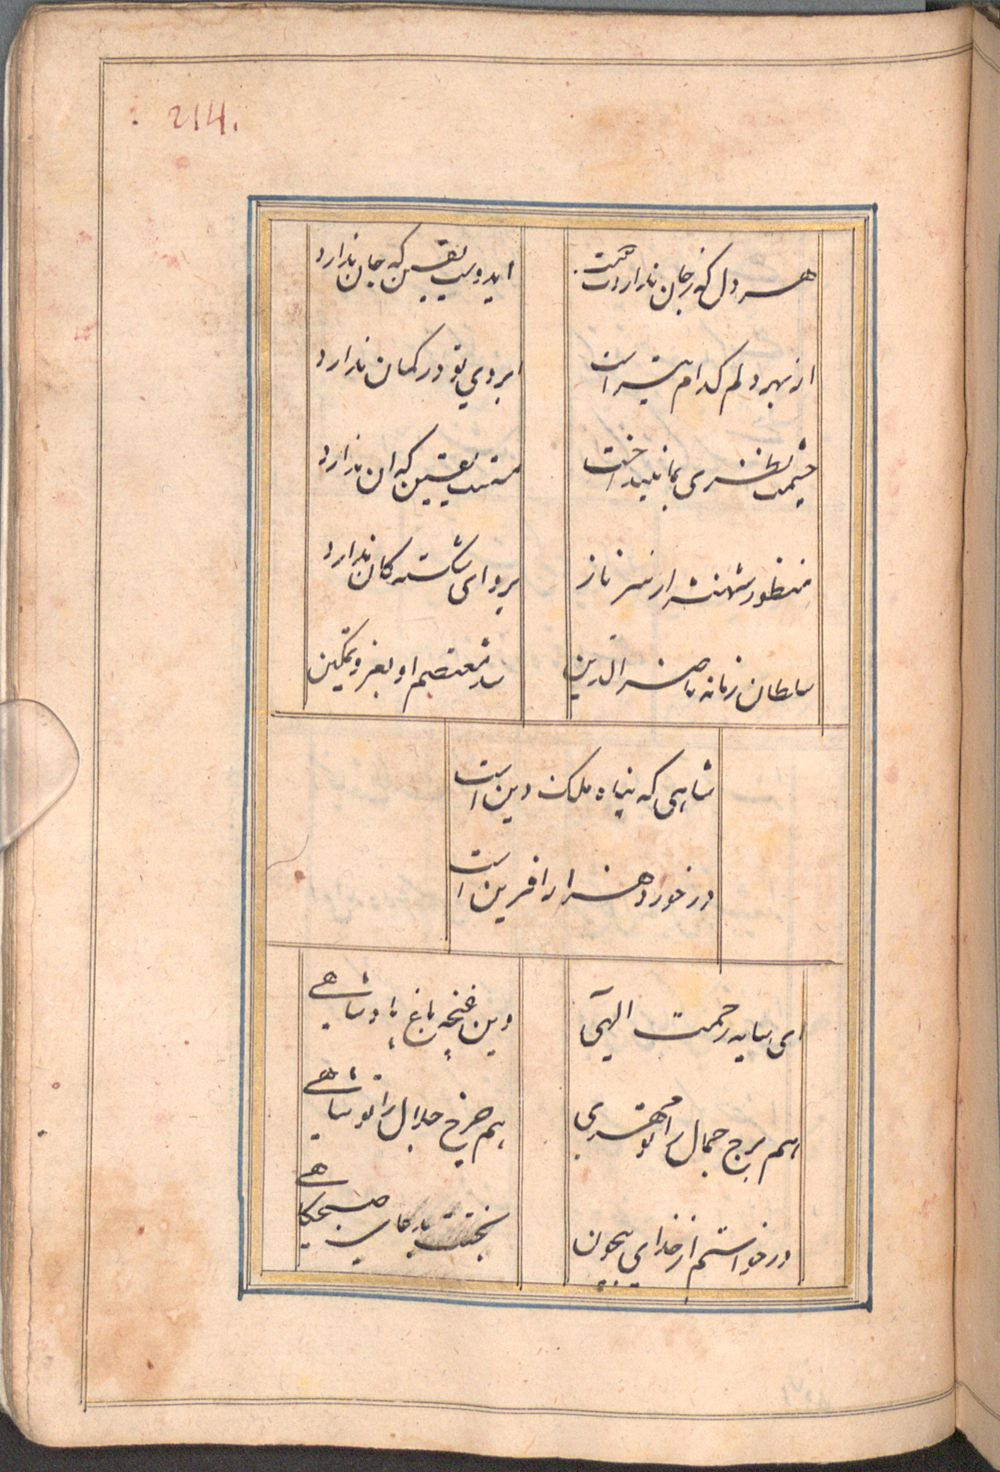 214.
هر دل که ز جان نداردت دوست
ایدوست یقین که جان ندارد
از بهر دلم کدام تیر است
ابروی تو در کمان ندارد
چشمت نظری بما نینداخت
یقین که آن ندارد
منظور شهنشه از سر ناز
پروای شکستگان ندارد
سلطان زمانه ناصر الدین
شد معتصم او بعز و تمکین
شاهی که پناه ملک و دین است
در خورد هزار آفرین است
ای سایه رحمت الهی
وین غنچه باغ پادشاهی
هم برج جمال را تو
هم چرخ جلال را تو شاهی
درخواستم از خدای بیچون
بختت صبحگاهی